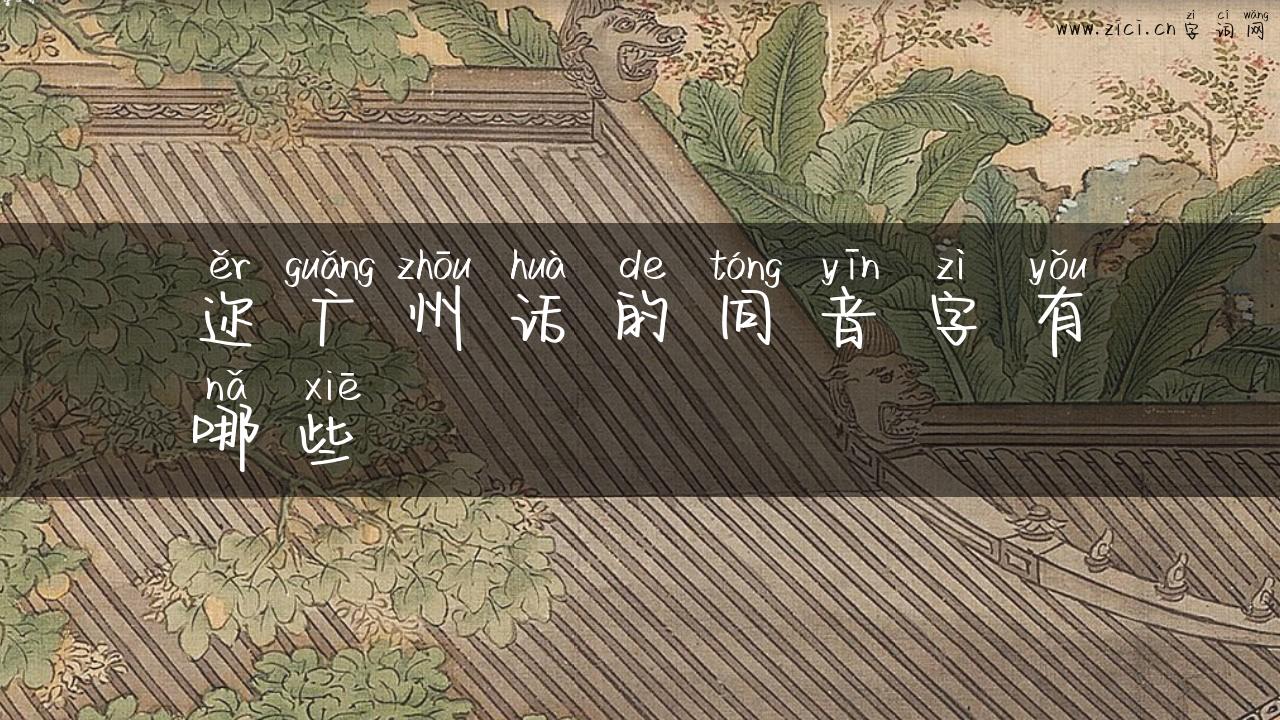 zì cí wǎng
www.zici.cn 字词网
ěr guǎng zhōu huà de tóng yīn zì yǒu
迩广州话的同音字有
nǎ xiē
哪些